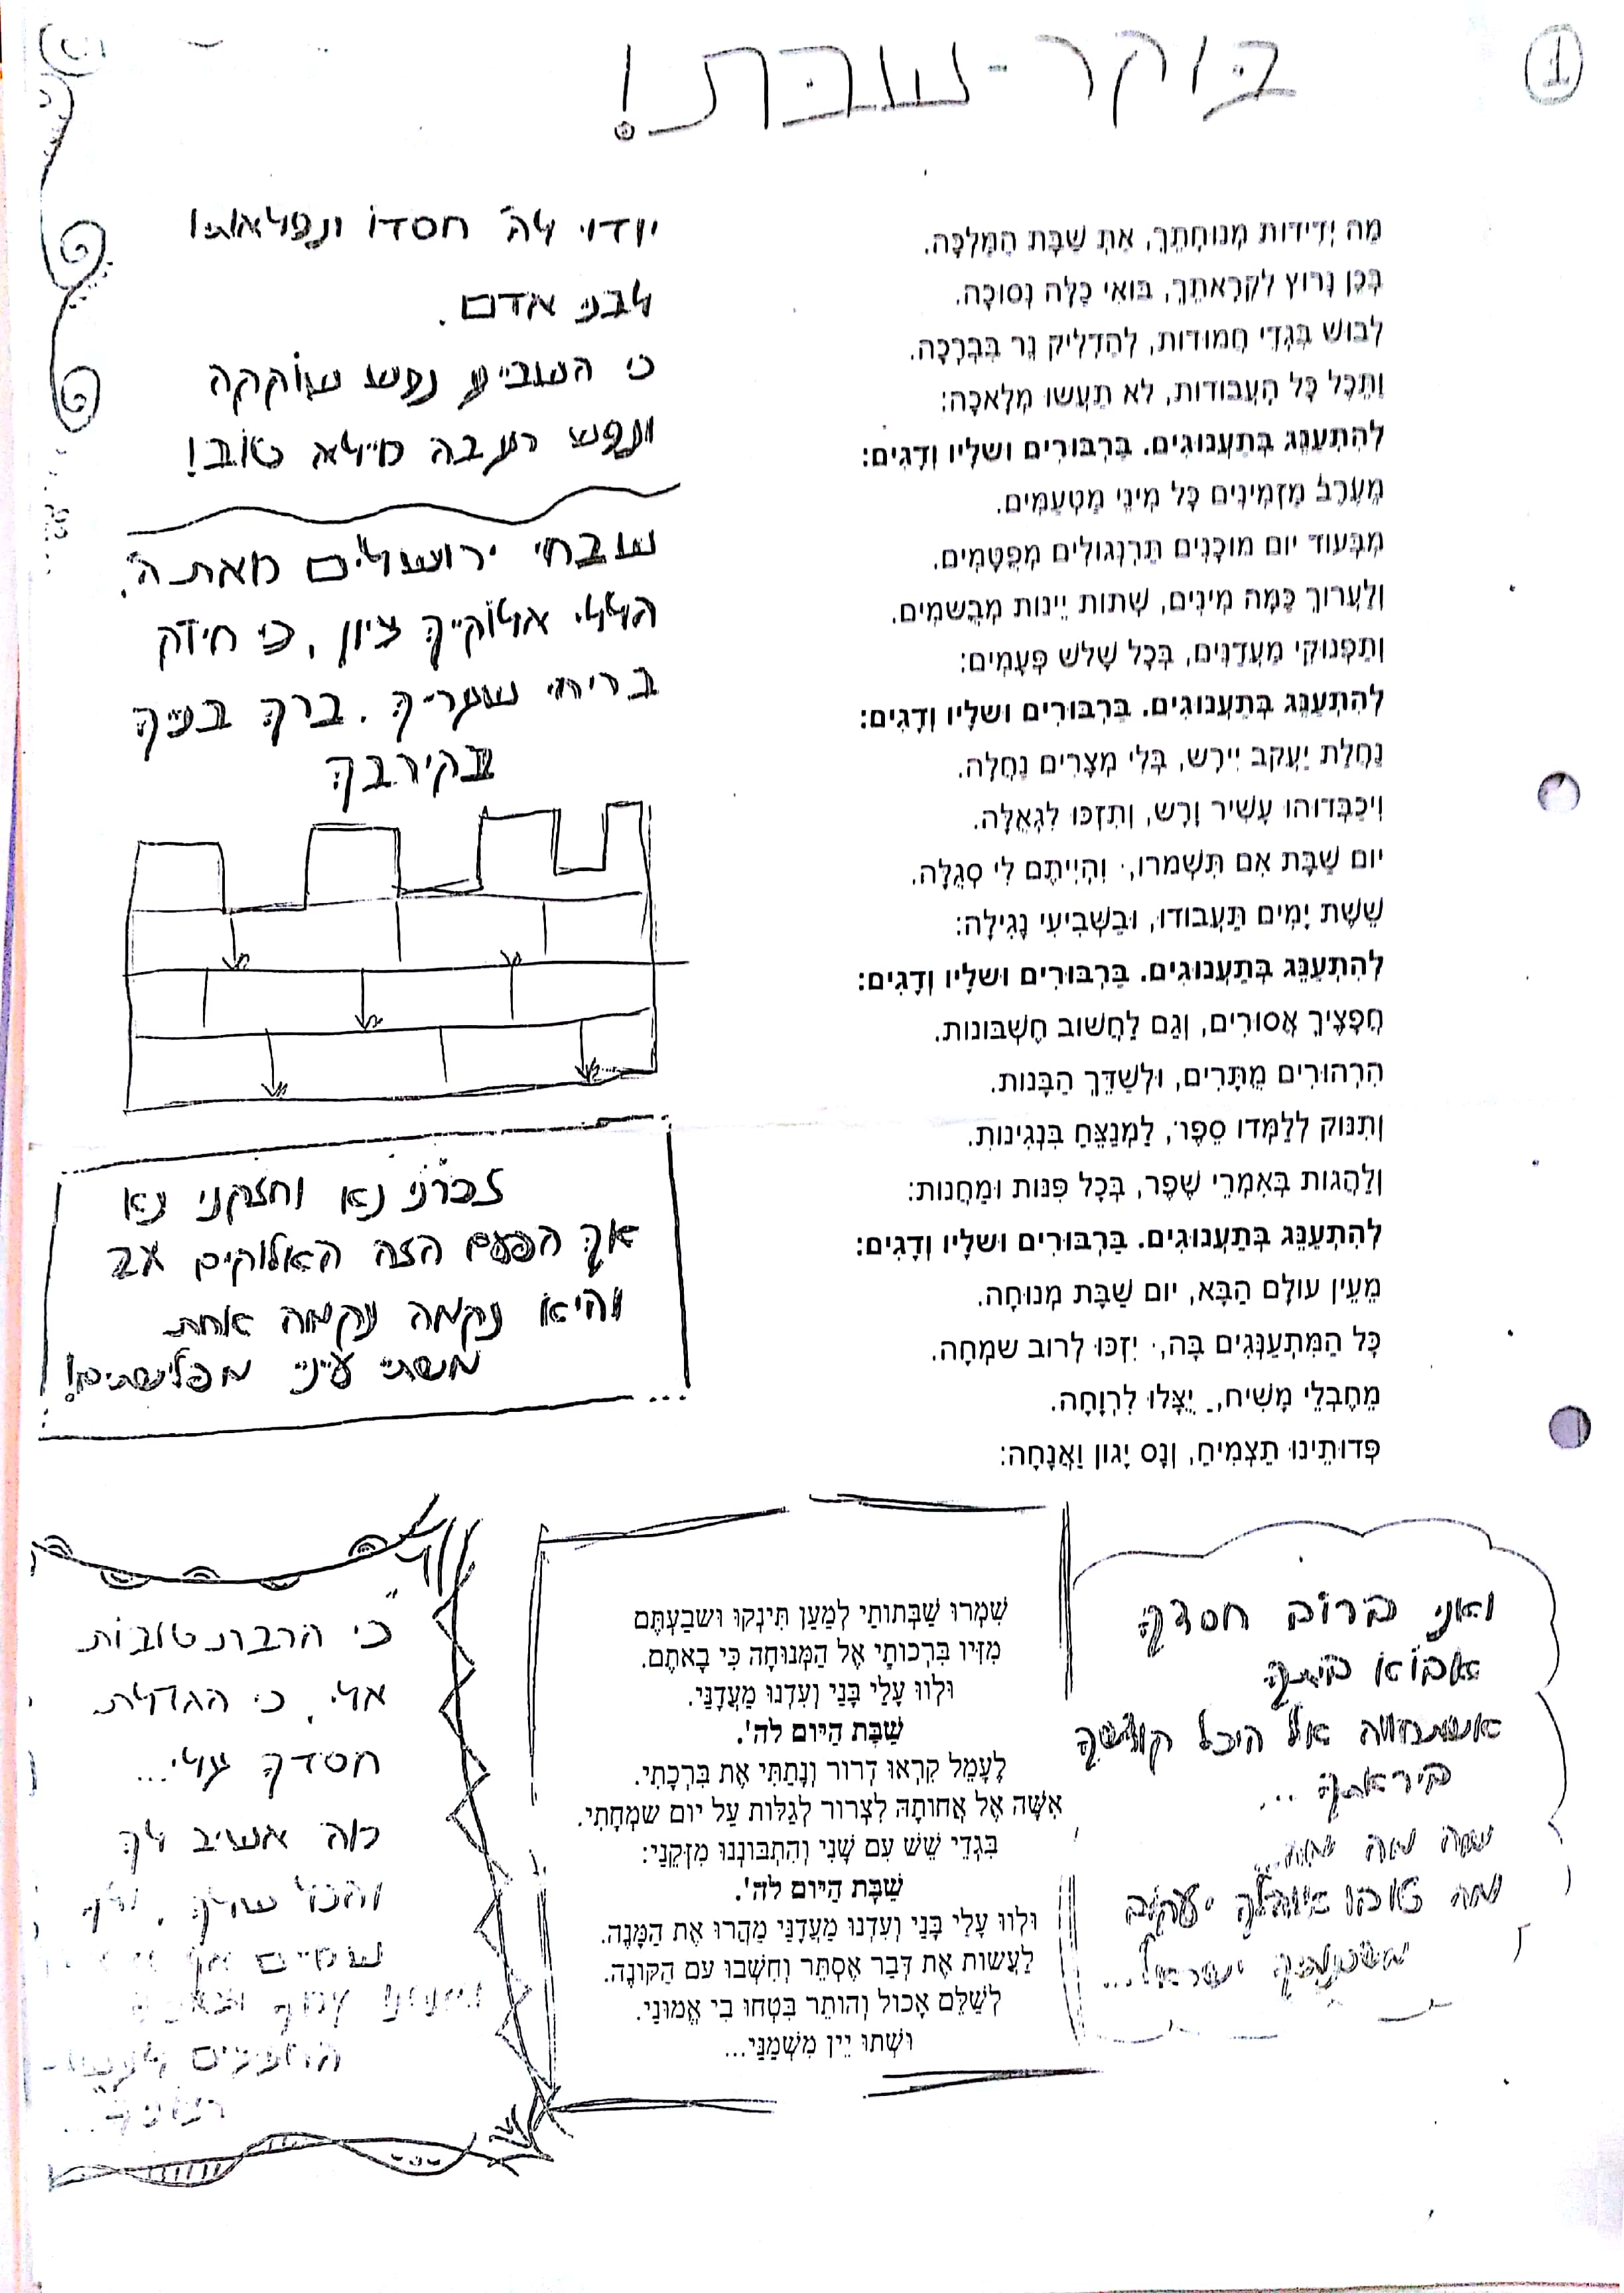 1
בוקר-שבת!
מַה יְדִידוּת מְנוּחָתֵךְ, אַתְּ שַׁבָּת הַמַּלְכָּה.
בְּכֵן נָרוּץ לִקְרָאתֵךְ, בּוֹאִי כַלָּה נְסוּכָה.
לְבוּשׁ בִּגְדֵי חֲמוּדוֹת, לְהַדְלִיק נֵר בִּבְרָכָה.
וַתֵּכֶל כָּל הָעֲבוֹדוֹת, לֹא תַעֲשׂוּ מְלָאכָה:
לְהִתְעַנֵּג בְּתַעֲנוּגִים. בַּרְבּוּרִים וּשְׂלָיו וְדָגִים:
מֵעֶרֶב מַזְמִינִים כָּל מִינֵי מַטְעַמִּים.
מִבְּעוֹד יוֹם מוּכָנִים תַּרְנְגוֹלִים מְפֻטָּמִים.
וְלַעֲרוֹךְ כַּמָּה מִינִים, שְׁתוֹת יֵינוֹת מְבֻשָּׂמִים.
וְתַפְנוּקֵי מַעֲדַנִּים, בְּכָל שָׁלֹשׁ פְּעָמִים:
לְהִתְעַנֵּג בְּתַעֲנוּגִים. בַּרְבּוּרִים וּשְׂלָיו וְדָגִים:
נַחֲלַת יַעֲקֹב יִירָשׁ, בְּלִי מְצָרִים נַחֲלָה.
וִיכַבְּדוּהוּ עָשִׁיר וָרָשׁ, וְתִזְכּוּ לִגְאֻלָּה.
יוֹם שַׁבָּת אִם תִּשְׁמֹרוּ, וִהְיִיתֶם לִי סְגֻלָּה.
שֵׁשֶׁת יָמִים תַּעֲבוֹדוּ, וּבַשְּׁבִיעִי נָגִילָה:
לְהִתְעַנֵּג בְּתַעֲנוּגִים. בַּרְבּוּרִים וּשְׂלָיו וְדָגִים:
חֲפָצֶיךָ אֲסוּרִים, וְגַם לַחֲשׁוֹב חֶשְׁבּוֹנוֹת.
הִרְהוּרִים מֻתָּרִים, וּלְשַׁדֵּךְ הַבָּנוֹת.
וְתִנּוֹק לְלַמְּדוֹ סֵפֶר, לַמְנַצֵּחַ בִּנְגִינוֹת.
וְלַהֲגוֹת בְּאִמְרֵי שֶׁפֶר, בְּכָל פִּנּוֹת וּמַחֲנוֹת:
לְהִתְעַנֵּג בְּתַעֲנוּגִים. בַּרְבּוּרִים וּשְׂלָיו וְדָגִים:
מֵעֵין עוֹלָם הַבָּא, יוֹם שַׁבָּת מְנוּחָה.
כָּל הַמִּתְעַנְּגִים בָּהּ, יִזְכּוּ לְרוֹב שִׂמְחָה.
מֵחֶבְלֵי מָשִׁיחַ, יֻצָּלוּ לִרְוָחָה.
פְּדוּתֵינוּ תַצְמִיחַ, וְנָס יָגוֹן וַאֲנָחָה:
יודו לה' חסדו ונפלאותיו
לבני אדם.
כי השביע נפש שוקקה
ונפש רעבה מילא טוב!
שבחי ירושלים את ה'.
הללי אלוקייך ציון, כי חיזק
בריחי שעריך. ברך בנייך
בקירבך
זכרני נא וחזקני נא
אך הפעם הזה האלוקים
נקמה נקמה אחת
משתי עיניי מפלישתים!
ואני ברוב חסדך
אבוא ביתך
אשתחווה אל היכל קודשך
ביראתך...
מה טובו אוהליך יעקוב
משכנותיך ישראל...
שִׁמְרוּ שַׁבְּתוֹתַי לְמַעַן תִּינְקוּ וּשְׂבַעְתֶּם
מִזִּיו בִּרְכוֹתַי אֶל הַמְּנוּחָה כִּי בָאתֶם.
וּלְווּ עָלַי בָּנַי וְעִדְנוּ מַעֲדָנַי.
שַׁבָּת הַיּוֹם לה'.
לְעָמֵל קִרְאוּ דְרוֹר וְנָתַתִּי אֶת בִּרְכָתִי.
אִשָּׁה אֶל אֲחוֹתָהּ לִצְרוֹר לְגַלּוֹת עַל יוֹם שִׂמְחָתִי.
בִּגְדֵי שֵׁשׁ עִם שָׁנִי וְהִתְבּוֹנְנוּ מִזְּקֵנַי:
שַׁבָּת הַיּוֹם לה'.
וּלְווּ עָלַי בָּנַי וְעִדְנוּ מַעֲדָנַי מַהֲרוּ אֶת הַמָּנֶה.
לַעֲשׂוֹת אֶת דְּבַר אֶסְתֵּר וְחִשְּׁבוּ עִם הַקּוֹנֶה.
לְשַׁלֵּם אָכוֹל וְהוֹתֵר בִּטְחוּ בִי אֱמוּנַי.
וּשְׁתוּ יֵין מִשְׁמַנַּי...
"כי הרבת טובות
אלי, כי הגדלת
חסדך עלי...
מה אשיב לך
והכל שלך,
שמיים אף